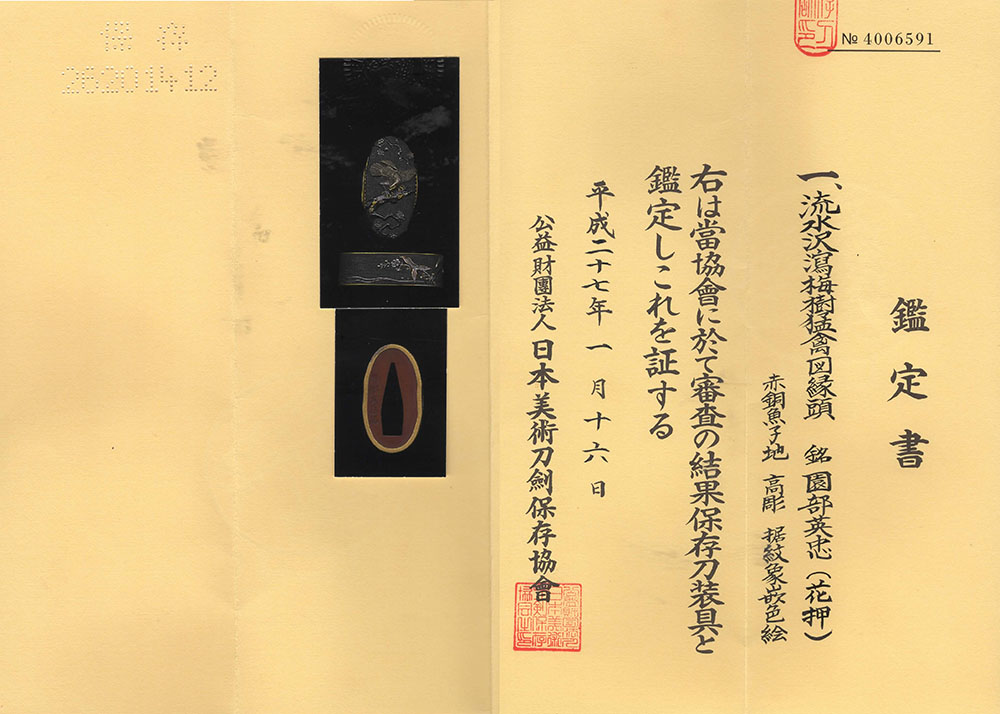 № 4006591
鑑定書
一、流水沢瀉梅樹猛禽図縁頭 銘 園部英忠(花押)
赤銅魚子地 高彫 据紋象嵌色絵
右は當協會に於て審査の結果保存刀装具と
鑑定しこれを証する
平成二十七年一月十六日
公益財團法人日本美術刀劍保存協會
保存
26201412